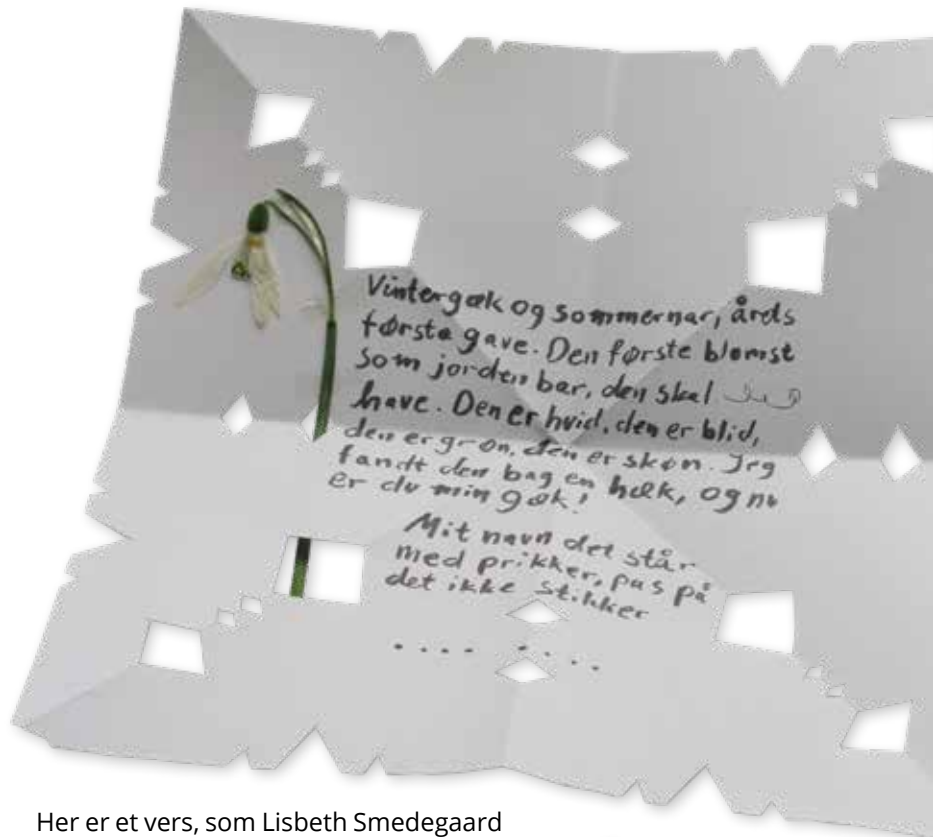 Vintergæk og sommernar, årets
første gave. Den første blomst
som jorden bar, den skal
have. Den er hvid, den er blid,
den er grøn, den er skøn. Jeg
fandt den bag en hæk, og nu
er du min gæk!
Mit navn det står
med prikker, pas på
det ikke stikker
.... ....
Her er et vers, som Lisbeth Smedegaard